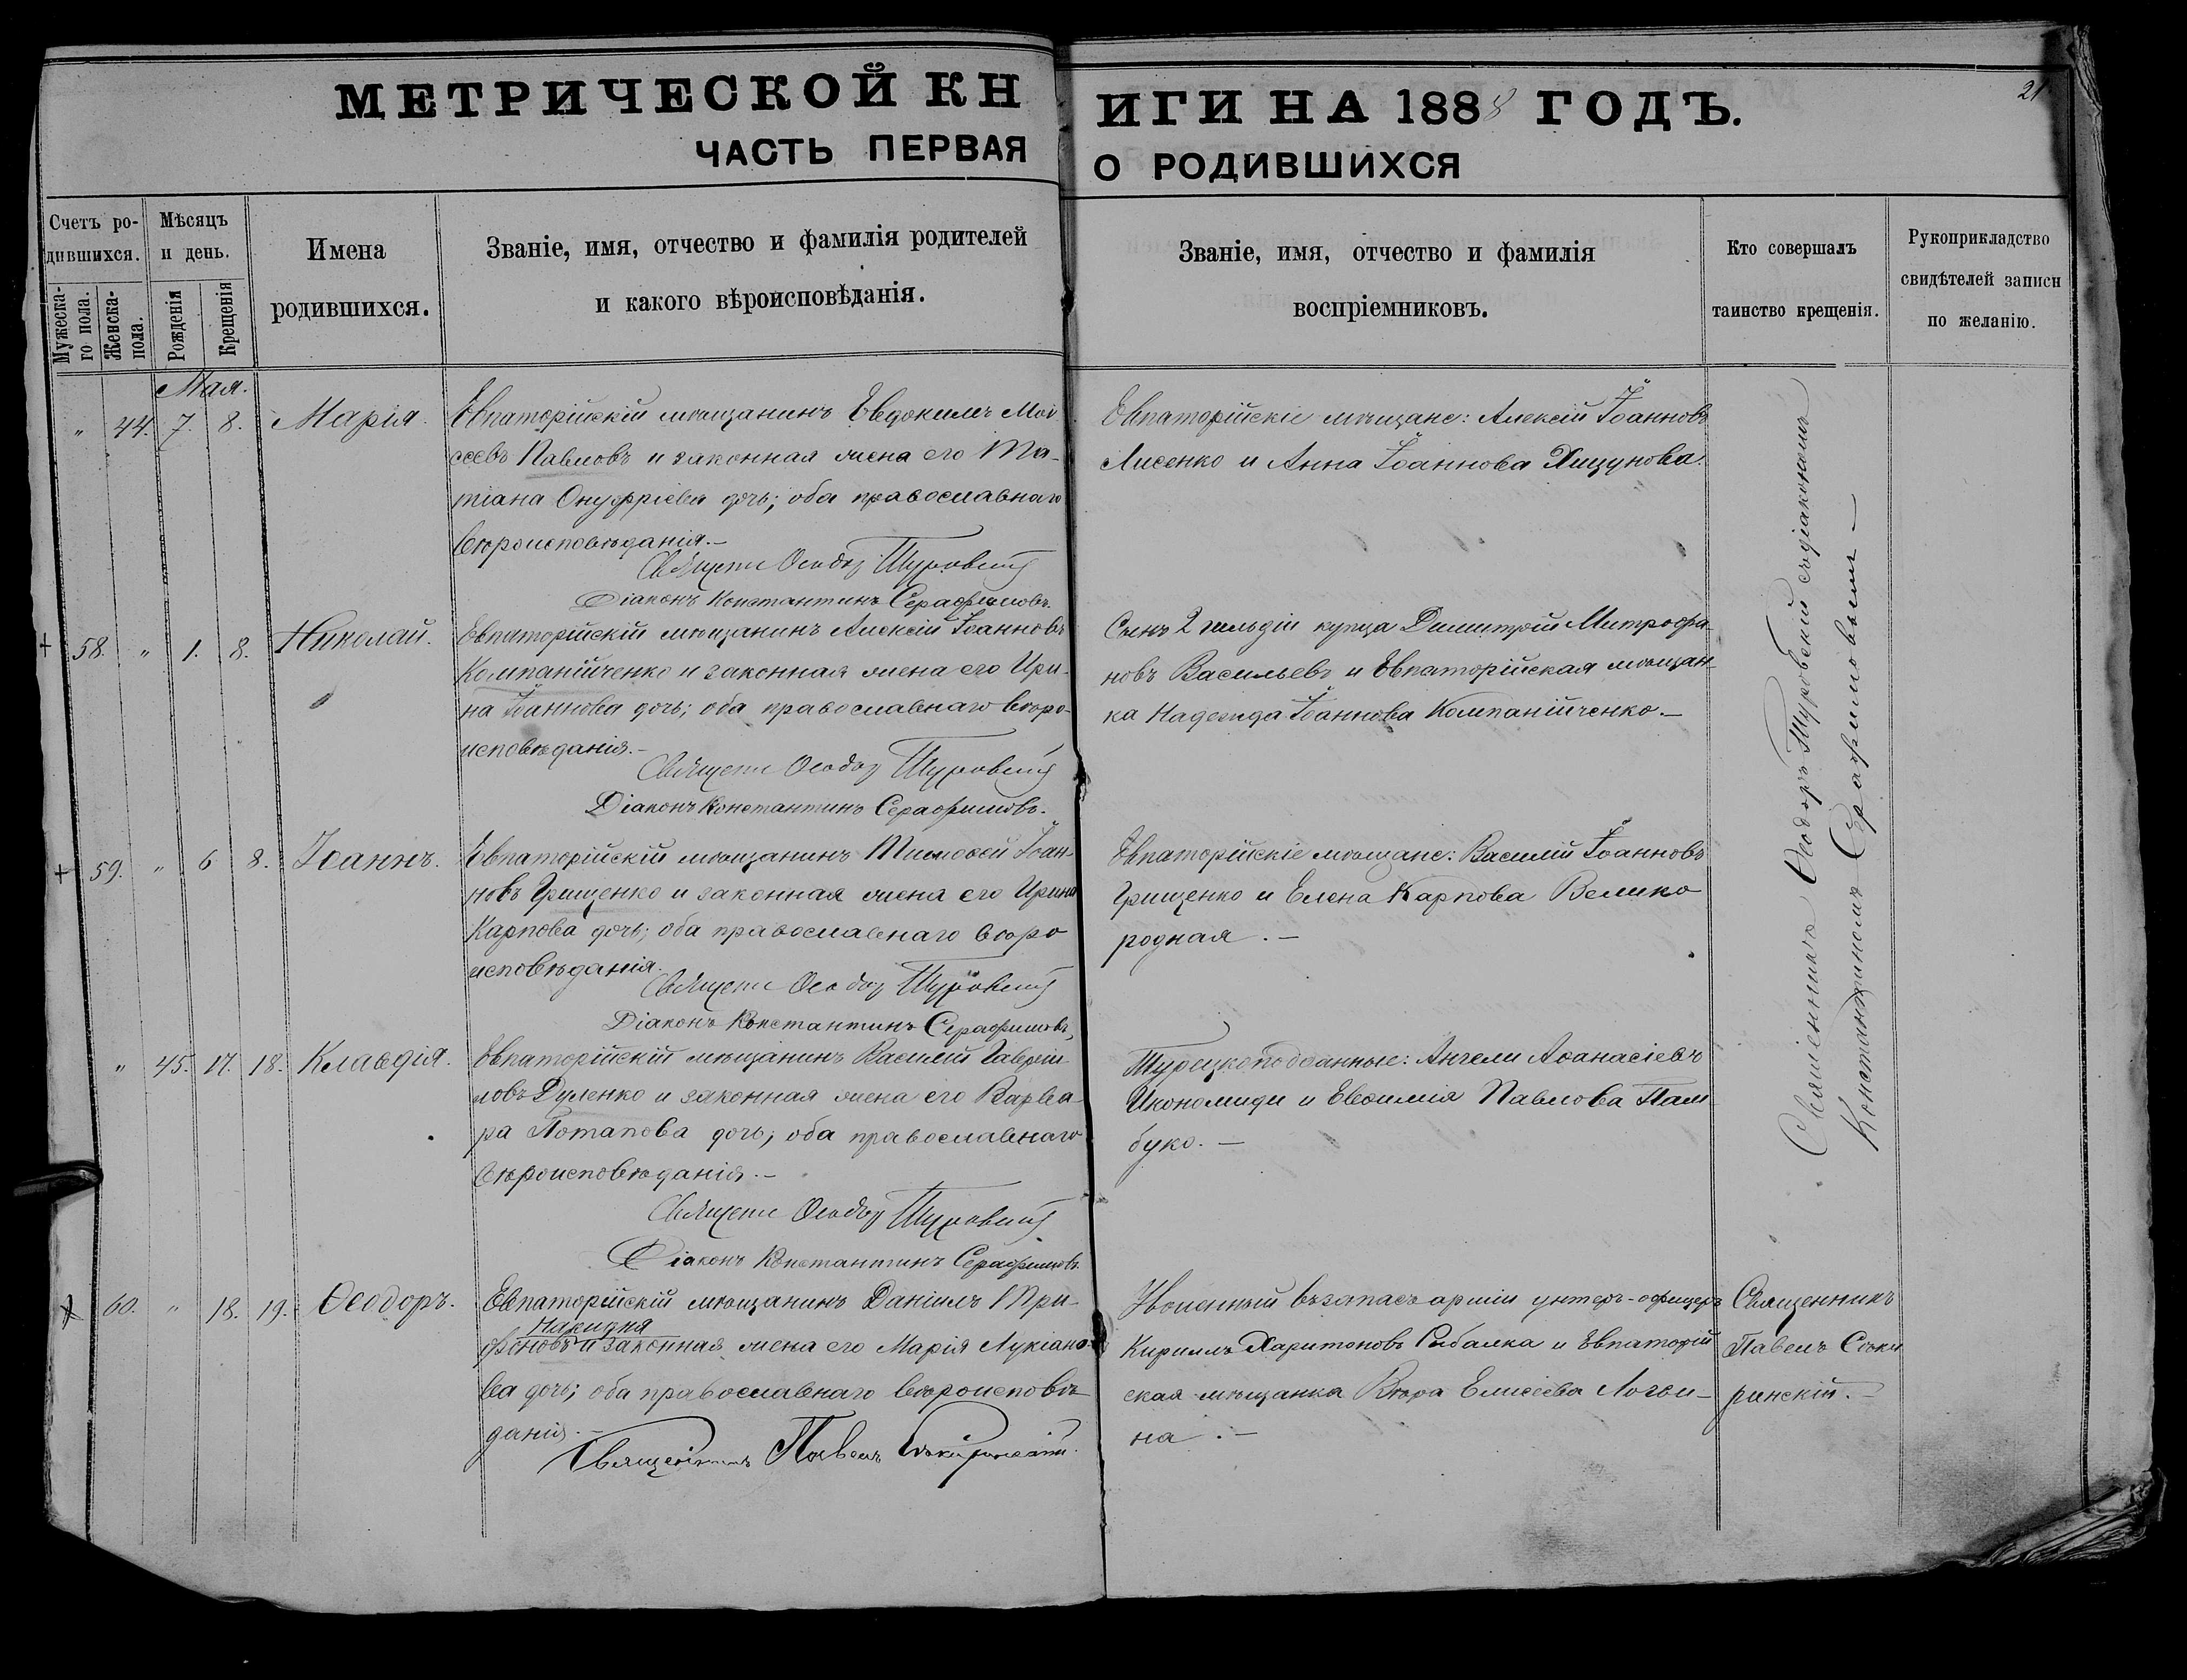 МЕТРИЧЕСКОЙ КНИГИ НА 1888 ГОДЪ.
21
ЧАСТЬ ПЕРВАЯ О РОДИВШИХСЯ
Счетъ ро-
дившихся.
Мужеска-
го пола.
Женска-
пола.
Мѣсяцъ
и день.
Рожденія
Крещенія
Имена
родившихся.
Званіе, имя, отчество и фамилія родителей
и какого вѣроисповѣданія.
Званіе, имя, отчество и фамилія
воспріемниковъ.
Кто совершалъ
таинство крещенія.
Рукоприкладство
свидѣтелей записи
по желанію.
Мая.
" 44. 7. 8. Марія.
Евпаторійскій мѣщанинъ Евдокимъ Мои
сеевъ Павловъ и законная жена его Та-
тіана Онуфріева дочь; оба православнаго
вѣроисповѣданія.—
Священ Ѳеодор Туровскій
Діаконъ Константинъ Серафимовъ.
Евпаторійскіе мѣщане: Алексій Іоанновъ
Лисенко и Анна Іоаннова Хицунова.
+ 58. " 1. 8. Николай.
Евпаторійскій мѣщанинъ Алексій Іоанновъ
Компанійченко и законная жена его Ири-
на Іоаннова дочь; оба православнаго вѣро-
исповѣданія.—
Священ Ѳеодор Туровскій
Діаконъ Константинъ Серафимовъ.
Сынъ 2 гильдіи купца Димитрій Митрофа-
новъ Васильевъ и Евпаторійская мѣщан-
ка Надежда Іоаннова Компанійченко.—
+ 59. " 6 8. Іоаннъ.
Евпаторійскій мѣщанинъ Тимоѳей Іоан-
новъ Грищенко и законная жена его Ирина
Карпова дочь; оба православнаго вѣро
исповѣданія.
Священ Ѳеодор Туровскій
Діаконъ Константинъ Серафимовъ.
Евпаторійскіе мѣщане: Василій Іоанновъ
Грищенко и Елена Карпова Велико
родная.—
" 45. 17. 18. Клавдія.
Евпаторійскій мѣщанинъ Василій Гавріи-
ловъ Дуленко и законная жена его Варва-
ра Потапова дочь; оба православнаго
вѣроисповѣданія.—
Священ Ѳеодор Туровскій
Діаконъ Константинъ Серафимовъ
Турецкоподданные: Ангели Аѳанасіевъ
Икономиди и Евѳимія Павлова Пам
буко.—
Священникъ Ѳеодоръ Туровскій съ діакономъ
Константиномъ Серафимовымъ—
+ 60. " 18. 19. Ѳеодоръ.
Евпаторійскій мѣщанинъ Даніилъ Три-
Накидня
фоновъ и законная жена его Марія Лукіано-
ва дочь; оба православнаго вѣроисповѣ
данія.—
Священникъ Павелъ Сокиринскій.
Уволенный въ запасъ арміи унтеръ-офицеръ
Кириллъ Харитоновъ Рибалка и Евпаторій
ская мѣщанка Вѣра Елисѣева Логви-
на.—
Священникъ
Павелъ Соки
ринскій.—